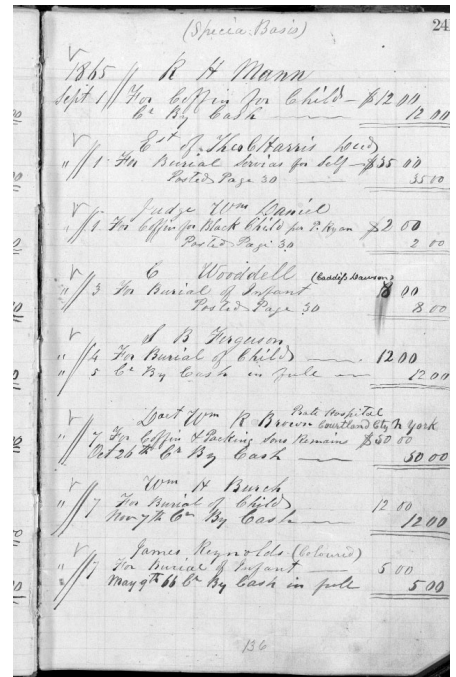 (Specia. Basis) 241
1865 R H Mann
Sept 1 For Coffin for Child — $12 00
Cr By Cash — 12 00
Est of Theo C Harris Decd
" 1 For Burial Servias for Self — $35 00
Posted Page 30 — 35 00
Judge Wm Daniel
" 1 For Coffin for Black Child per P. Ryan $2 00
Posted Page 30 2 00
C Wooddell (Caddifs Dawson)
" 3 For Burial of Infant 8 00
Posted Page 30 8 00
S B Ferguson
" 4 For Burial of Child — 12 00
" 5 Cr By Cash in full — 12 00
Doct Wm R Brown Hospital
Courtland City N York
" 7 For Coffin & Packing Sons Remains $50 00
Oct 26th Cr By Cash — 50 00
Wm H Burch
" 7 For Burial of Child 12 00
Nov 7th Cr By Cash — 12 00
James Reynolds (Coloured)
" 7 For Burial of Infant — 5 00
May 9th 66 Cr By Cash in full 5 00
136